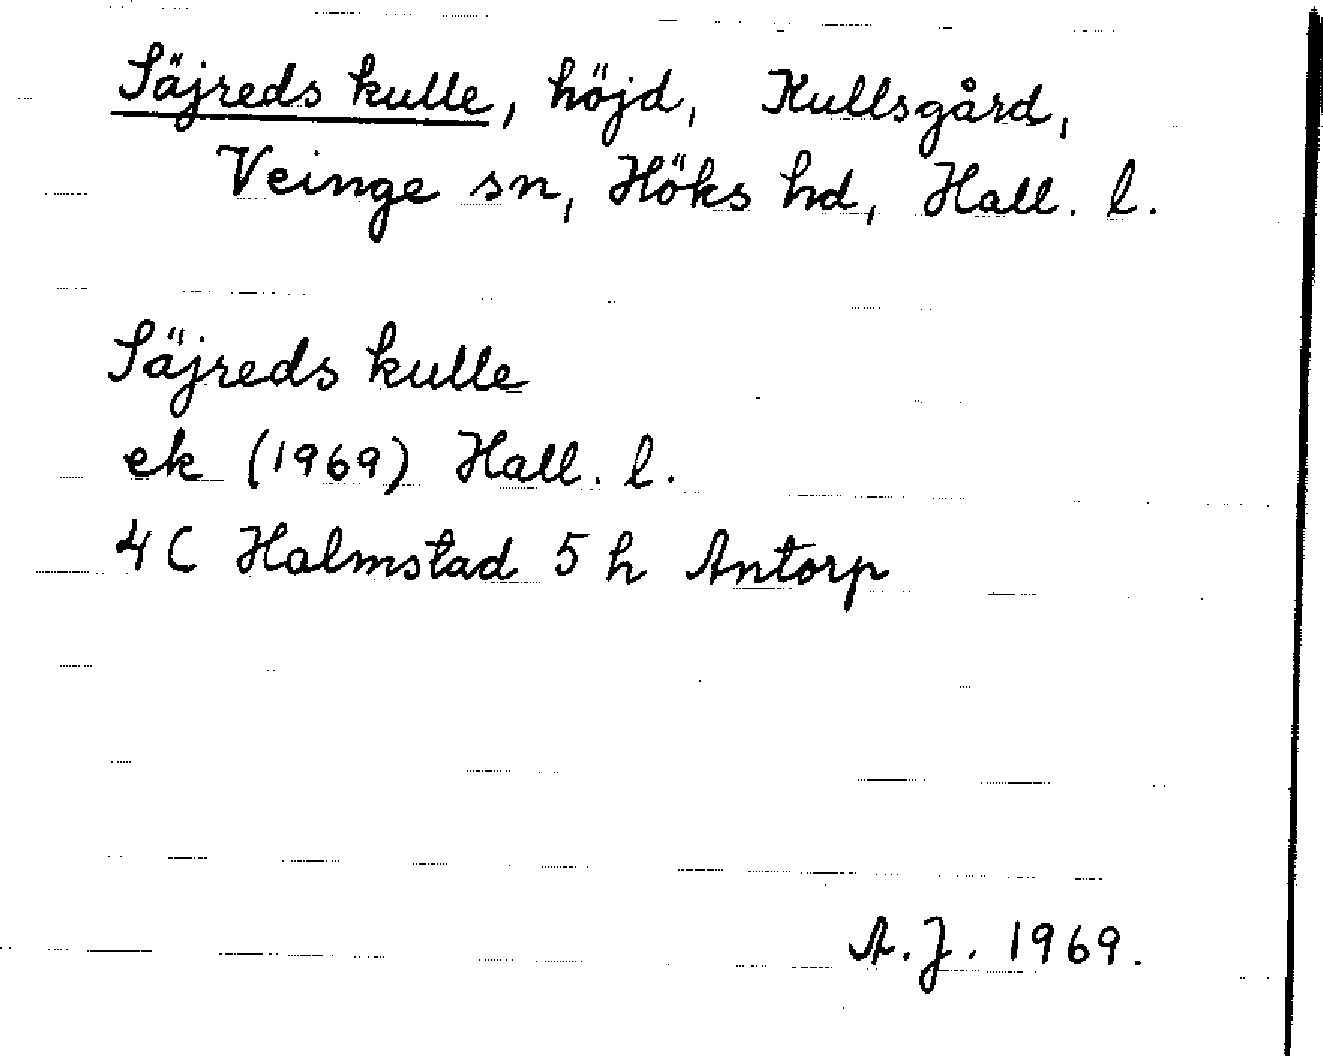 Säjreds kulle, höjd, Kullsgård,
Veinge sn, Höks hd, Hall. l.
Säjreds kulle
ek (1969) Hall. l.
4C Halmstad 5 h Antorp
A.J. 1969.